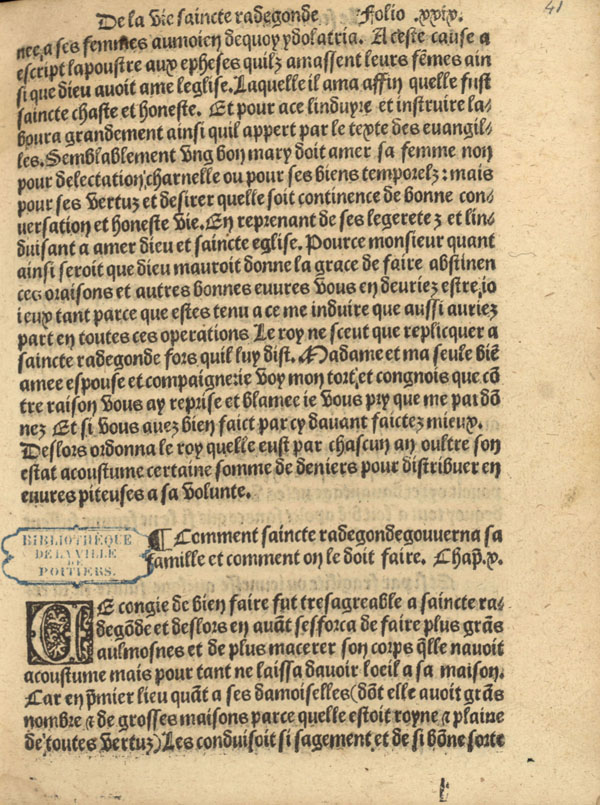 De la vie saincte radegonde Folio .xxix.
41
nee, a ses femmes aumoien dequoy ydolatria. A ceste cause a
escript lapoustre aux epheses quilz amassent leurs fẽmes ain
si que dieu avoit ame leglise. Laquelle il ama affin quelle fust
saincte chaste et honeste. Et pour ace linduyre et instruire la-
boura grandement ainsi quil appert par le texte des euangil-
les. Semblablement vng bon mary doit amer sa femme non
pour delectation charnelle ou pour ses biens temporelz: mais
pour ses vertuz et desirer quelle soit continence de bonne con-
uersation et honeste vie. En reprenant de ses legeretez et lin-
duisant a amer dieu et saincte eglise. Pource monsieur quant
ainsi seroit que dieu mauroit donne la grace de faire abstinen
ces oraisons et autres bonnes euures vous en deuriez estre, io
ieux tant parce que estes tenu a ce me induire que aussi auriez
part en toutes ces operations Le roy ne sceut que replicquer a
saincte radegonde fors quil luy dist. Madame et ma seule biẽ
amee espouse et compaignerie voy mon tort, et congnois que cõ
tre raison vous ay reprise et blamee ie vous pry que me paidõ
nez Et si vous auez bien faict par cy dauant faictez mieux.
Deslors ordonna le roy quelle eust par chascun an oultre son
estat acoustume certaine somme de deniers pour distribuer en
euures piteuses a sa volunte.
¶ Comment saincte radegonde gouuerna sa
famille et comment on le doit faire. Chap̃. x.
BIBLIOTHÈQUE
DE LA VILLE
DE
POITIERS.
CE congie de bien faire fut tresagreable a saincte ra-
degõde et deslors en auãt sesforca de faire plus grãs
aulmosnes et de plus macerer son corps q̃lle nauoit
acoustume mais pour tant ne laissa dauoir loeil a sa maison.
Car en p̃mier lieu quãt a ses damoiselles (dõt elle auoit grãs
nombre ⁊ de grosses maisons parce quelle estoit royne ⁊ plaine
de toutes vertuz) Les conduisoit si sagement et de si bõne sorte